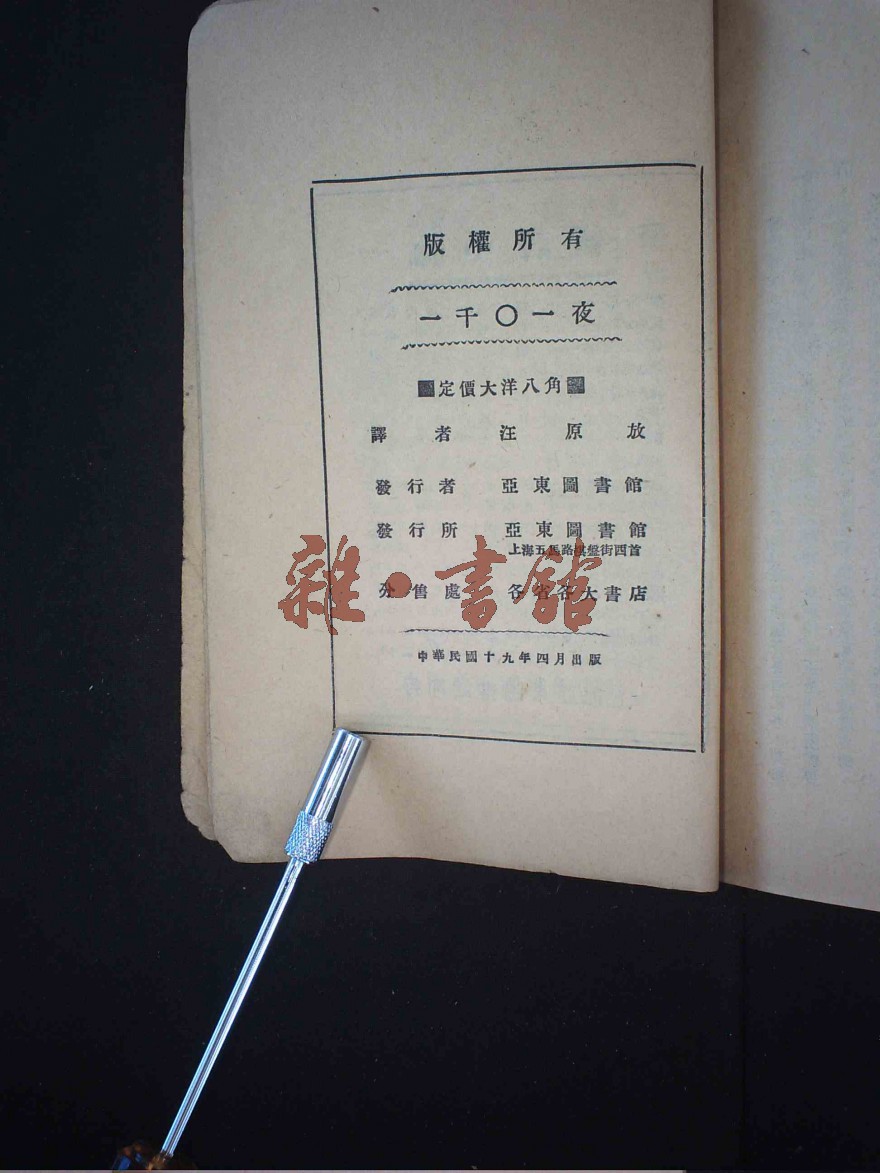 版權所有
一千〇一夜
定價大洋八角
譯者 汪原放
發行者 亞東圖書館
發行所 亞東圖書館
上海五馬路棋盤街西首
分售處 各省各大書店
中華民國十九年四月出版
雜·書館